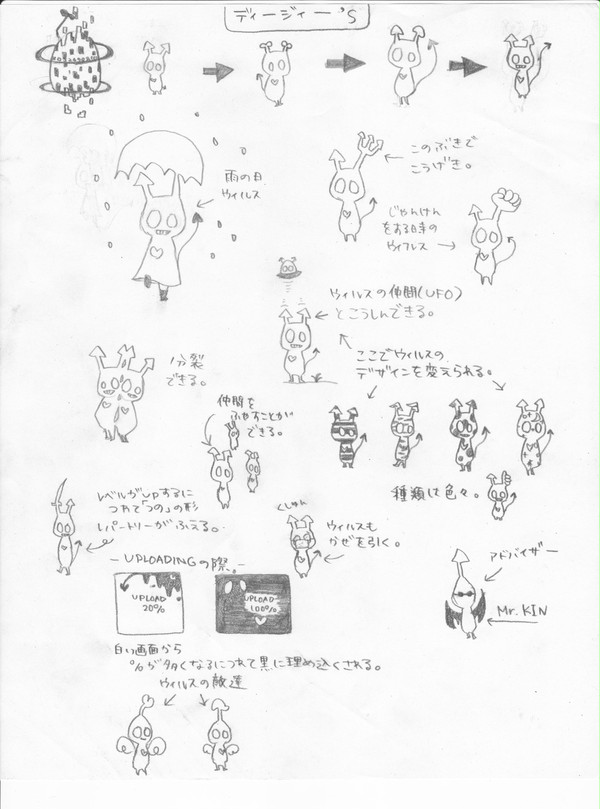 ディージィー'S
雨の日
ウィルス
このぶきで
こうげき。
じゃんけん
をする時の
ウィルス
ウィルスの仲間(UFO)
とこうしんできる。
ここでウィルスの
デザインを変えられる。
分裂
できる。
仲間を
ふやすことが
できる。
種類は色々。
レベルがUPするに
つれて「つの」の形
レパートリーがふえる。
くしゅん
ウィルスも
かぜを引く。
アドバイザー
Mr. KIN
-UPLOADINGの際。-
UPLOAD
20%
UPLOAD
100%
白い画面から
%が多くなるにつれて黒に埋め込くされる。
ウィルスの敵達